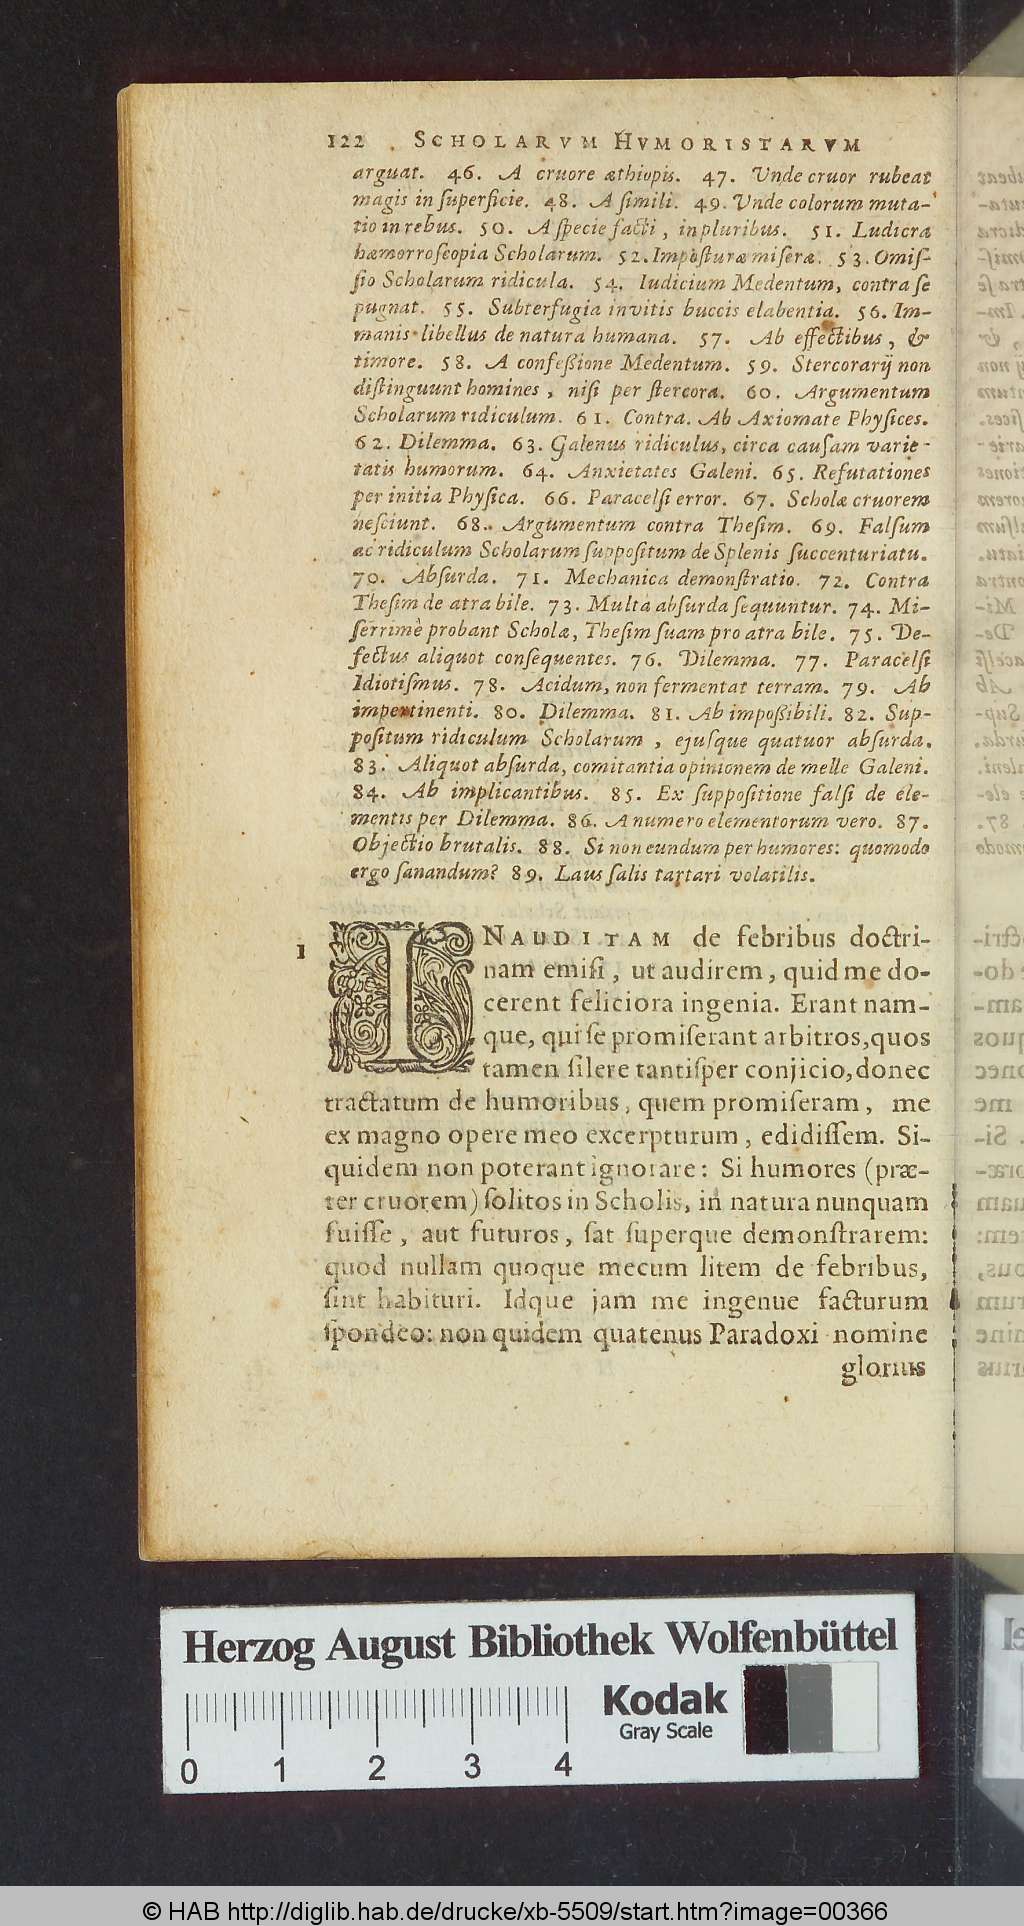 122 SCHOLARVM HVMORISTARVM
arguat. 46. A cruore æthiopis. 47. Unde cruor rubeat
magis in ſuperficie. 48. A ſimili. 49. Unde colorum muta-
tio in rebus. 50. A ſpecie facti, in pluribus. 51. Ludicra
hæmorroſcopia Scholarum. 52. Impoſturæ miſeræ. 53. Omiſ-
ſio Scholarum ridicula. 54. Iudicium Medentum, contra ſe
pugnat. 55. Subterfugia invitis buccis elabentia. 56. Im-
manis libellus de natura humana. 57. Ab effectibus, &
timore. 58. A confeßione Medentum. 59. Stercorarij non
diſtinguunt homines, niſi per ſtercora. 60. Argumentum
Scholarum ridiculum. 61. Contra. Ab Axiomate Phyſices.
62. Dilemma. 63. Galenus ridiculus, circa cauſam varie-
tatis humorum. 64. Anxietates Galeni. 65. Refutationes
per initia Phyſica. 66. Paracelſi error. 67. Scholæ cruorem
neſciunt. 68. Argumentum contra Theſim. 69. Falſum
ac ridiculum Scholarum ſuppoſitum de Splenis ſuccenturiatu.
70. Abſurda. 71. Mechanica demonſtratio. 72. Contra
Theſim de atra bile. 73. Multa abſurda ſequuntur. 74. Mi-
ſerrimè probant Scholæ, Theſim ſuam pro atra bile. 75. De-
fectus aliquot conſequentes. 76. Dilemma. 77. Paracelſi
Idiotiſmus. 78. Acidum, non fermentat terram. 79. Ab
impertinenti. 80. Dilemma. 81. Ab impoßibili. 82. Sup-
poſitum ridiculum Scholarum, ejuſque quatuor abſurda.
83. Aliquot abſurda, comitantia opinionem de melle Galeni.
84. Ab implicantibus. 85. Ex ſuppoſitione falſi de ele-
mentis per Dilemma. 86. A numero elementorum vero. 87.
Objectio brutalis. 88. Si non eundum per humores: quomodo
ergo ſanandum? 89. Laus ſalis tartari volatilis.
1 INAUDITAM de febribus doctri-
nam emiſi, ut audirem, quid me do-
cerent feliciora ingenia. Erant nam-
que, qui ſe promiſerant arbitros, quos
tamen ſilere tantiſper conjicio, donec
tractatum de humoribus, quem promiſeram, me
ex magno opere meo excerpturum, edidiſſem. Si-
quidem non poterant ignorare: Si humores (præ-
ter cruorem) ſolitos in Scholis, in natura nunquam
fuiſſe, aut futuros, ſat ſuperque demonſtrarem:
quod nullam quoque mecum litem de febribus,
ſint habituri. Idque jam me ingenue facturum
ſpondeo: non quidem quatenus Paradoxi nomine
glorius
Herzog August Bibliothek Wolfenbüttel
Kodak
Gray Scale
0 1 2 3 4
© HAB http://diglib.hab.de/drucke/xb-5509/start.htm?image=00366